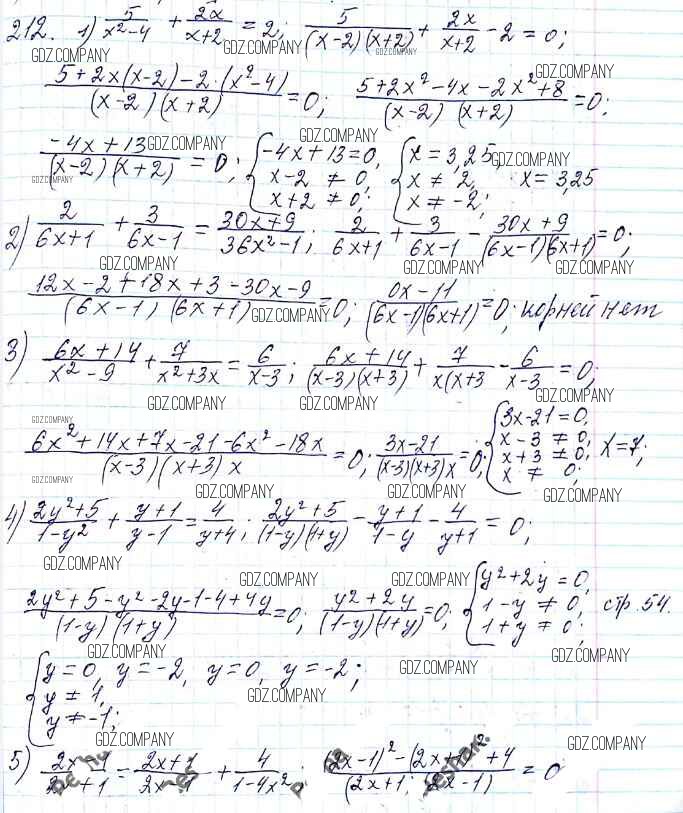 212. 1) 5/(x²-4) + 2x/(x+2) = 2; 5/((x-2)(x+2)) + 2x/(x+2) - 2 = 0;
GDZ.COMPANY GDZ.COMPANY GDZ.COMPANY
(5+2x(x-2)-2·(x²-4))/((x-2)(x+2)) = 0; (5+2x²-4x-2x²+8)/((x-2)(x+2)) = 0;
GDZ.COMPANY
(-4x+13)/((x-2)(x+2)) = 0; { -4x+13=0, x-2 ≠ 0, x+2 ≠ 0; { x=3,25, x ≠ 2, x ≠ -2; x=3,25
GDZ.COMPANY GDZ.COMPANY GDZ.COMPANY GDZ.COMPANY
2) 2/(6x+1) + 3/(6x-1) = (30x+9)/(36x²-1); 2/(6x+1) + 3/(6x-1) - (30x+9)/((6x-1)(6x+1)) = 0;
GDZ.COMPANY GDZ.COMPANY GDZ.COMPANY
(12x-2+18x+3-30x-9)/((6x-1)(6x+1)) = 0; (0x-11)/((6x-1)(6x+1)) = 0; корней нет
GDZ.COMPANY
3) (6x+14)/(x²-9) + 7/(x²+3x) = 6/(x-3); (6x+14)/((x-3)(x+3)) + 7/(x(x+3 - 6/(x-3) = 0;
GDZ.COMPANY GDZ.COMPANY GDZ.COMPANY
GDZ.COMPANY
(6x²+14x+7x-21-6x²-18x)/((x-3)(x+3)x) = 0; (3x-21)/((x-3)(x+3)x) = 0; { 3x-21=0, x-3 ≠ 0, x+3 ≠ 0, x ≠ 0; x=7;
GDZ.COMPANY GDZ.COMPANY GDZ.COMPANY
4) (2y²+5)/(1-y²) + (y+1)/(y-1) = 4/(y+4); (2y²+5)/((1-y)(1+y)) - (y+1)/(1-y) - 4/(y+1) = 0;
GDZ.COMPANY GDZ.COMPANY GDZ.COMPANY
(2y²+5-y²-2y-1-4+4y)/((1-y)(1+y)) = 0; (y²+2y)/((1-y)(1+y)) = 0; { y²+2y=0, 1-y ≠ 0, 1+y ≠ 0; стр. 54.
GDZ.COMPANY GDZ.COMPANY
{ y=0, y=-2, y ≠ 1, y ≠ -1; y=0, y=-2;
GDZ.COMPANY GDZ.COMPANY
GDZ.COMPANY GDZ.COMPANY
5) = (2x+1)/ + 4/(1-4x²); = 0